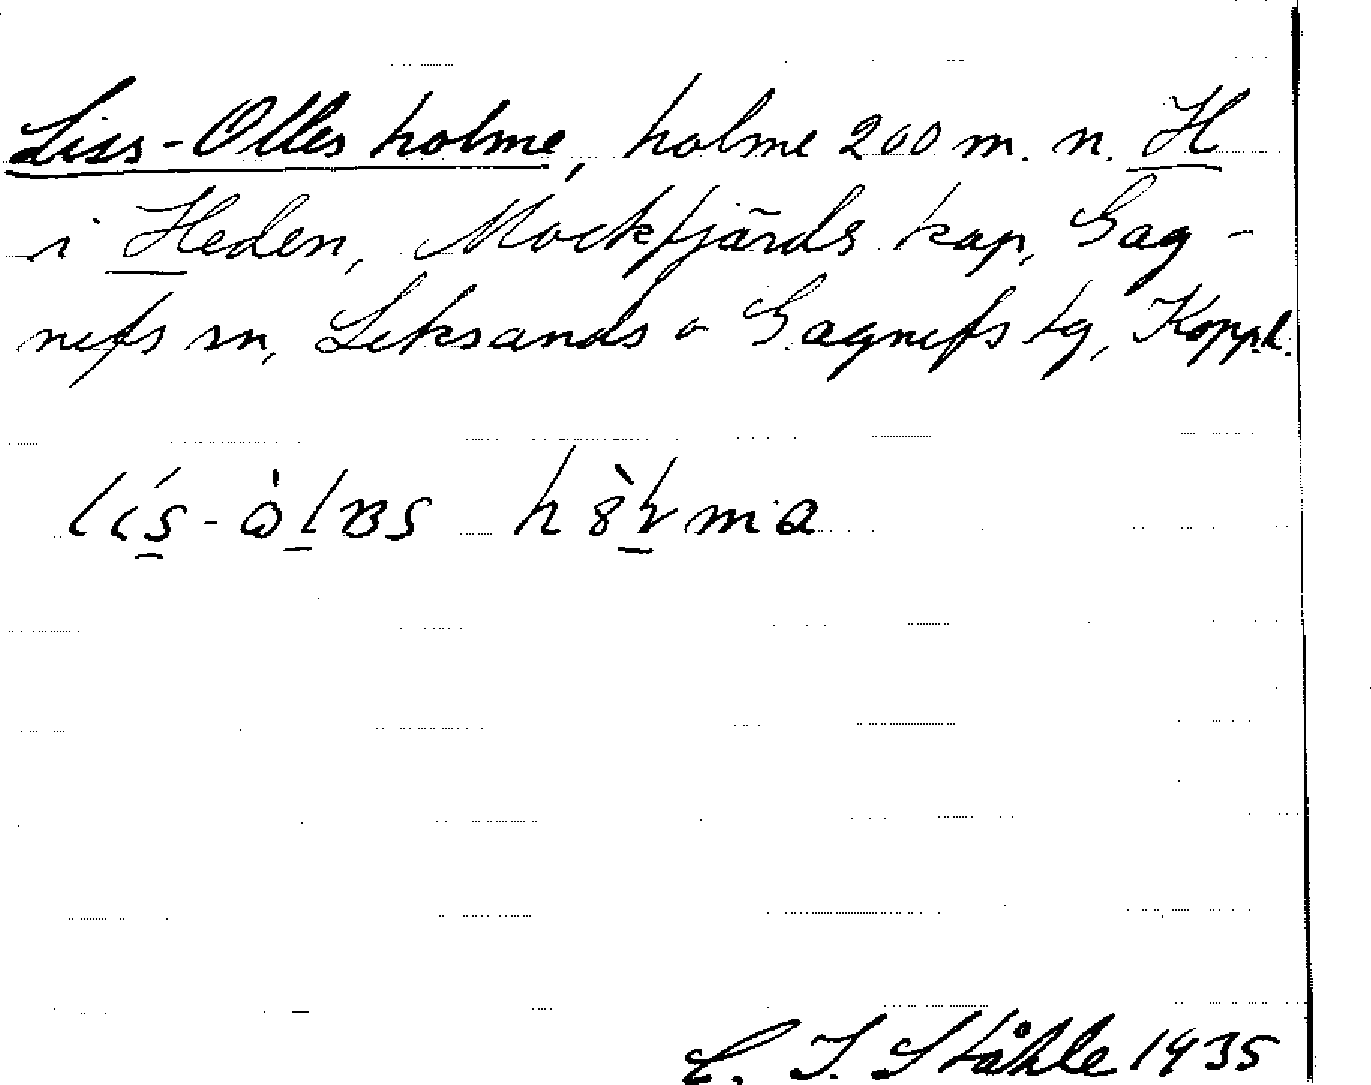 Liss-Olles holme, holme 200 m. n. H
i Heden, Mockfjärds kap, Gag-
nefs sn, Leksands o Gagnefs tg, Koppb.
C. I. Ståhle 1935